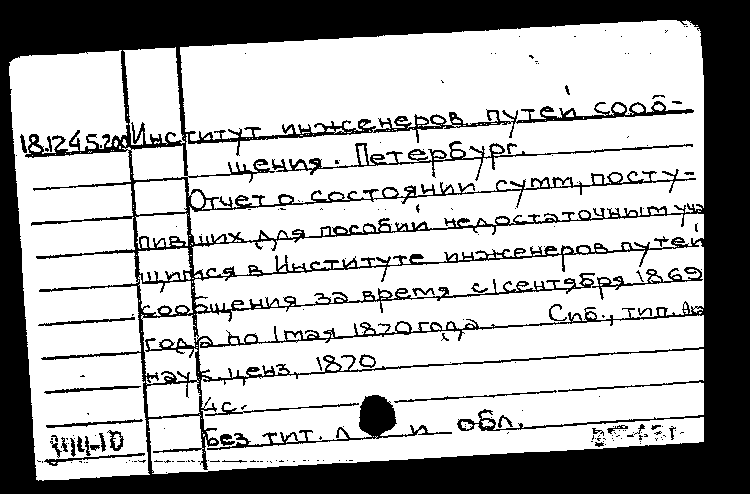 18.1245.200 Институт инженеров путей сооб-
щения. Петербург.
Отчет о состоянии сумм, посту-
пивших для пособий недостаточным уча
щимся в Институте инженеров путей
сообщения за время с 1 сентября 1869
года по 1 мая 1870 года. Спб., тип. Ака
наук, ценз, 1870.
4с.
Без тит. л и обл.